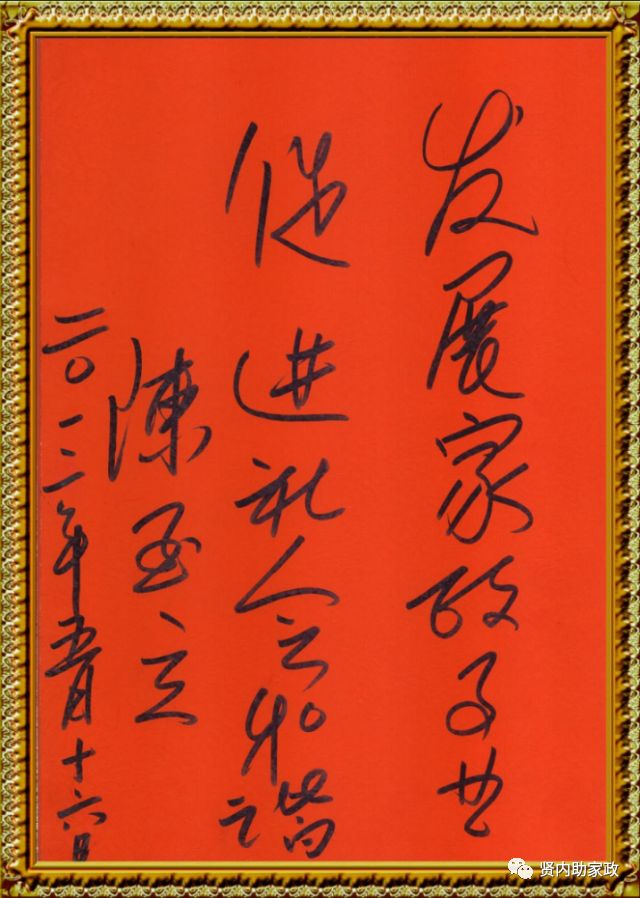 发展家政事业
促进社会和谐
陳至立
二〇一二年五月十六日
贤内助家政